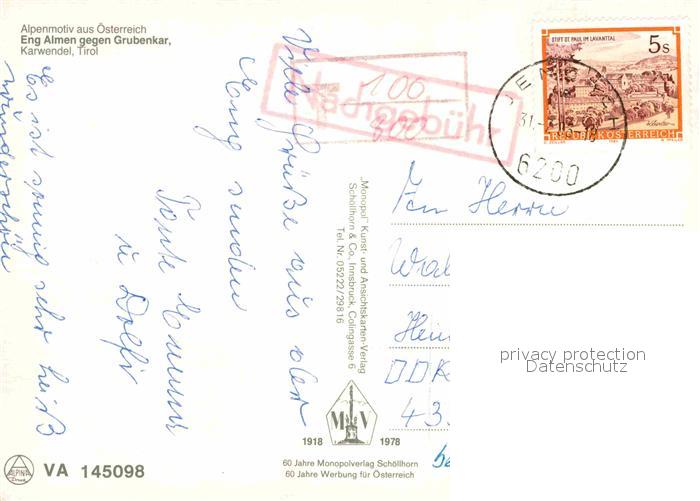 Alpenmotiv aus Österreich
Eng Almen gegen Grubenkar,
Karwendel, Tirol
Viele Grüße aus der
Eng senden
Tante
u Dolfi
Es ist sonnig sehr heiß
wunderschön
Nachgebühr
100
300
STIFT ST. PAUL IM LAVANTTAL
5s
REPUBLIK ÖSTERREICH
31.
6200
„Monopol" Kunst- und Ansichtskarten-Verlag
Schöllhorn & Co., Innsbruck, Colingasse 6
Tel. Nr. 05222/29816
An Herrn
Hein
DDR
43
privacy protection
Datenschutz
M V
1918 1978
60 Jahre Monopolverlag Schöllhorn
60 Jahre Werbung für Österreich
ALPINA
Druck
VA 145098